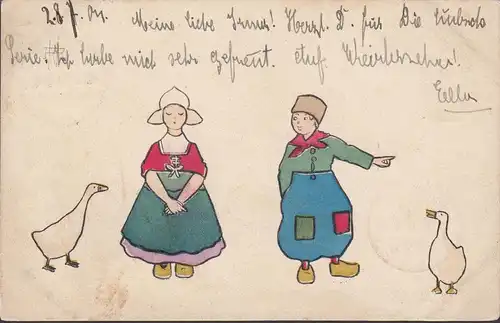 28/7.01. Meine liebe Irma! Herzl. D. für Die
Serie. Ich habe mich sehr gefreut. Auf Wiedersehen!
Ella